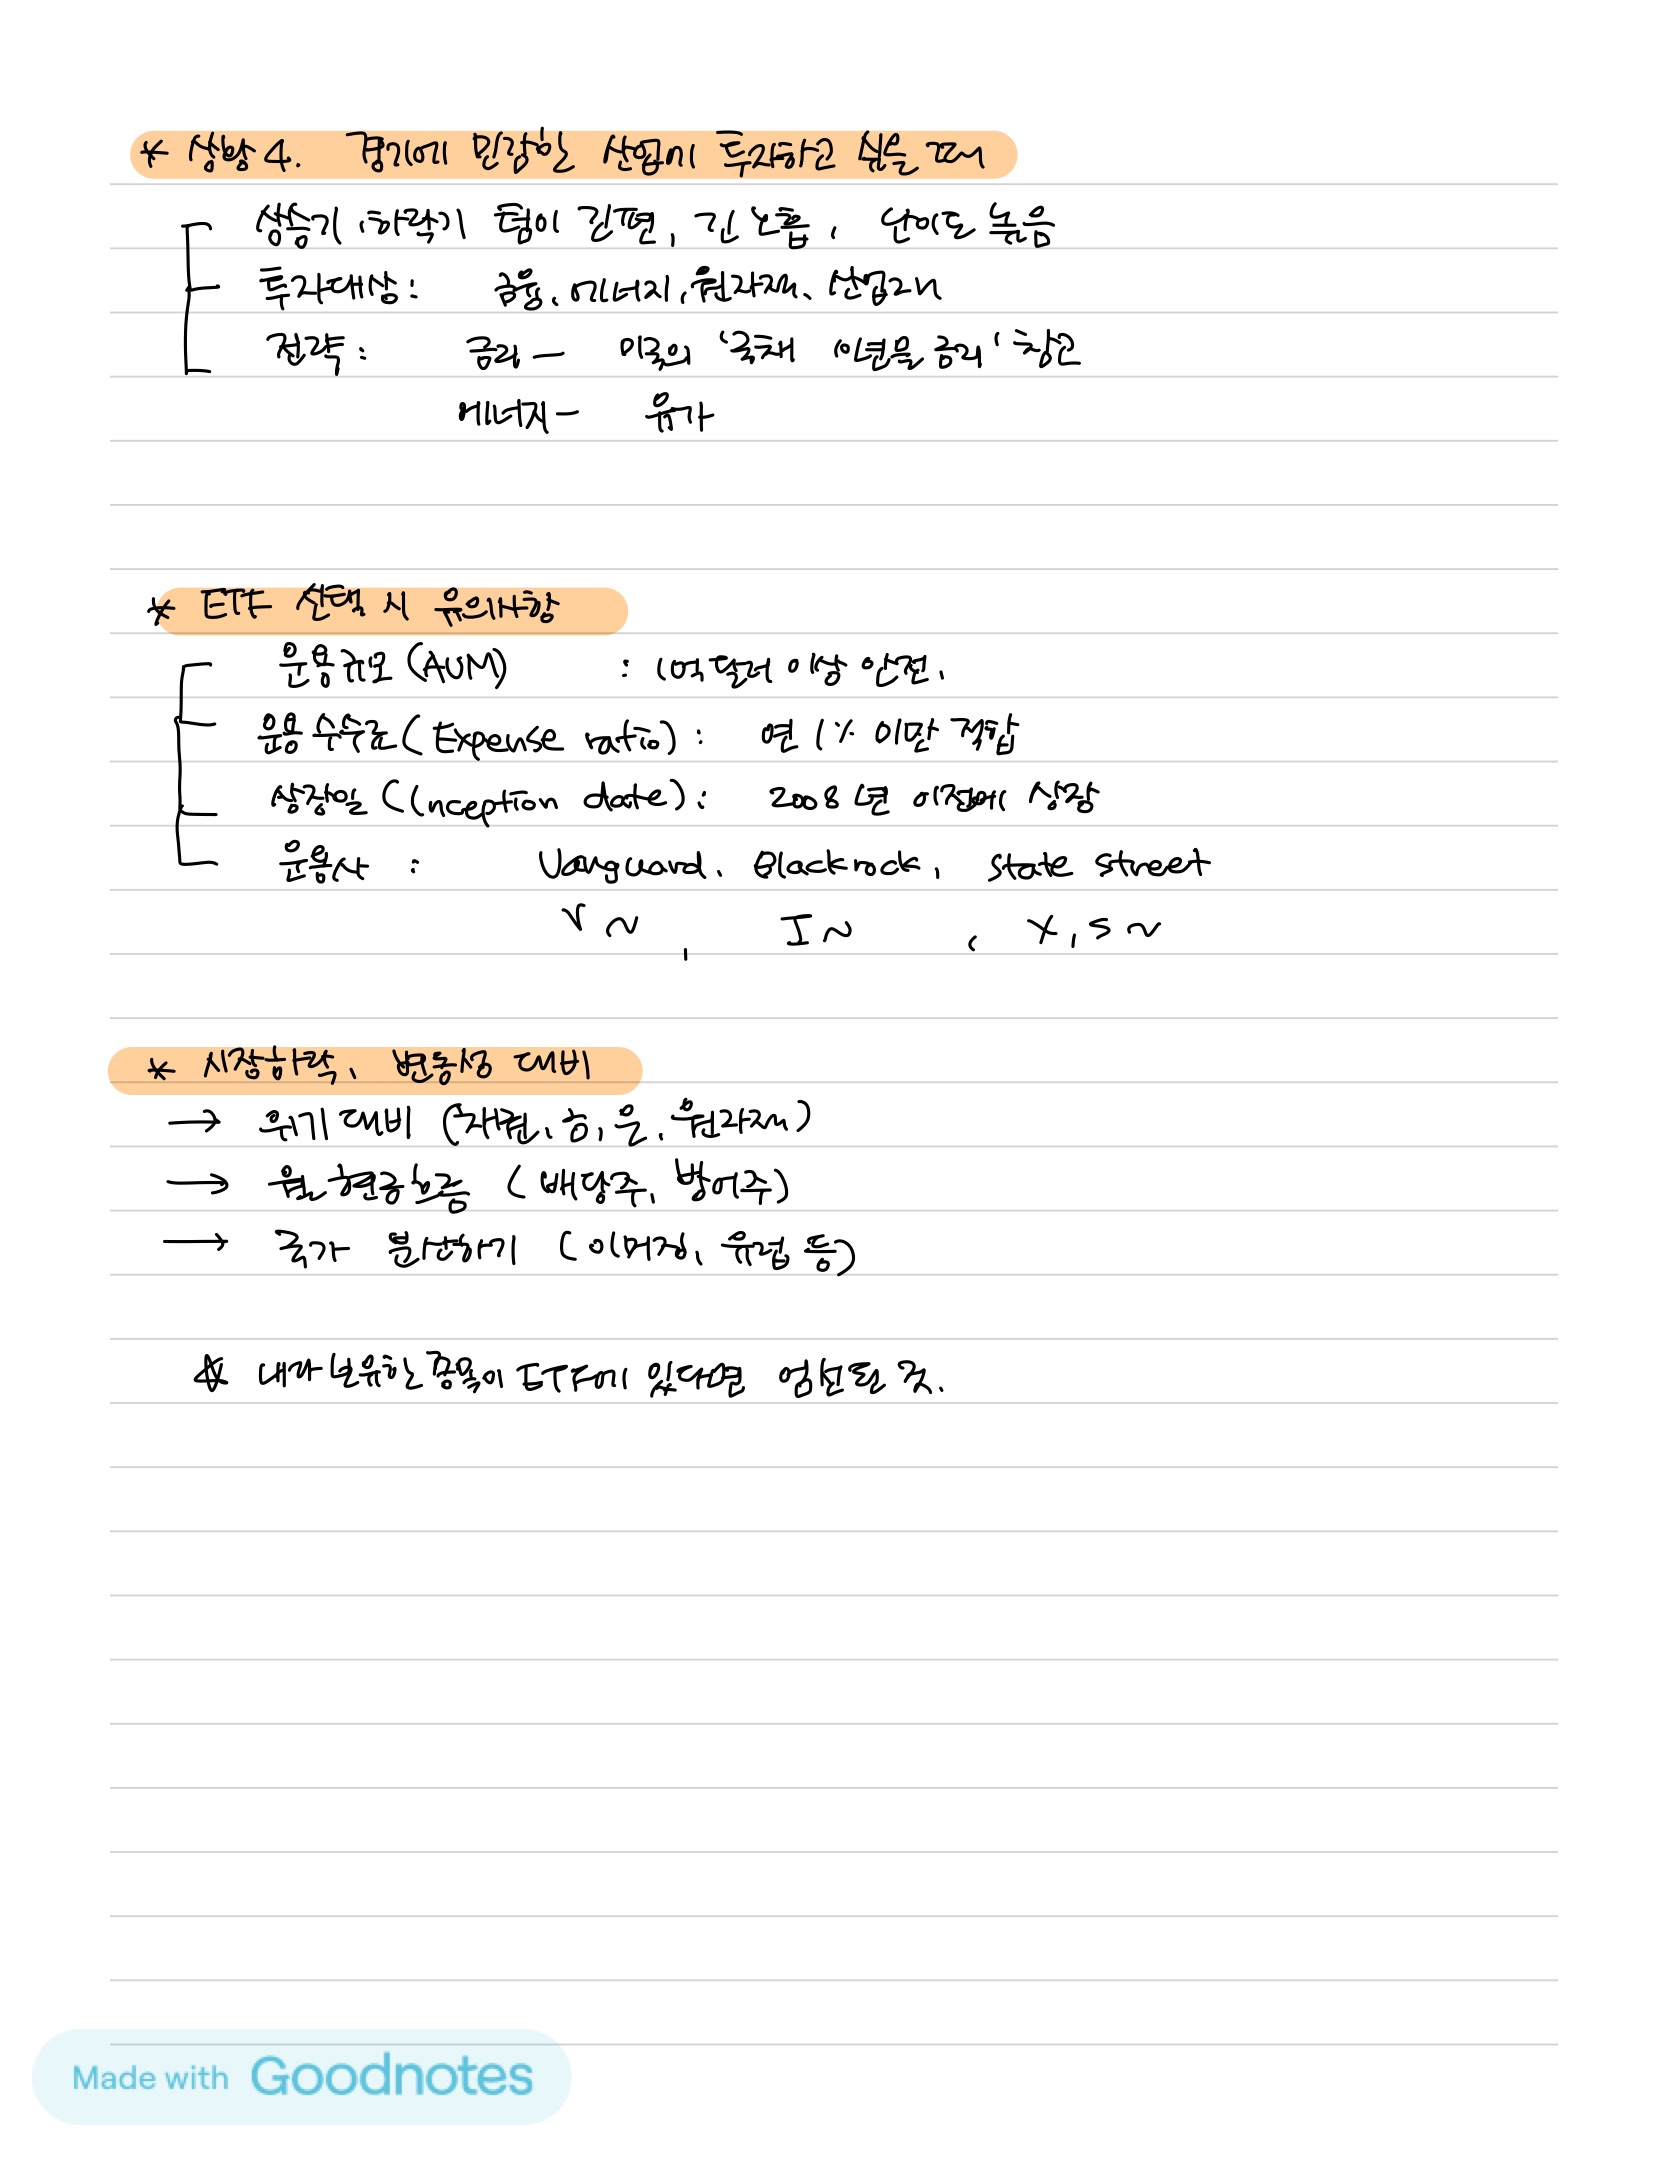 * 상황 4. 경기에 민감한 산업에 투자하고 싶을 때
상승기, 하락기 텀이 긴편, 긴 호흡, 난이도 높음
투자대상: 금융, 에너지, 원자재, 산업재
전략: 금리 — 미국의 '국채 10년물 금리' 참고
에너지 — 유가
* ETF 선택 시 유의사항
운용규모 (AUM) : 1억 달러 이상 안전.
운용 수수료 (Expense ratio) : 연 1% 미만 적합
상장일 (Inception date) : 2008년 이전에 상장
운용사 : Vanguard, Blackrock, State street
V ~ , I ~ , X, S ~
* 시장하락, 변동성 대비
→ 위기 대비 (채권, 금, 은, 원자재)
→ 월 현금흐름 (배당주, 방어주)
→ 국가 분산하기 (이머징, 유럽 등)
☆ 내가 보유한 종목이 ETF에 있다면 엄선된 것.
Made with Goodnotes